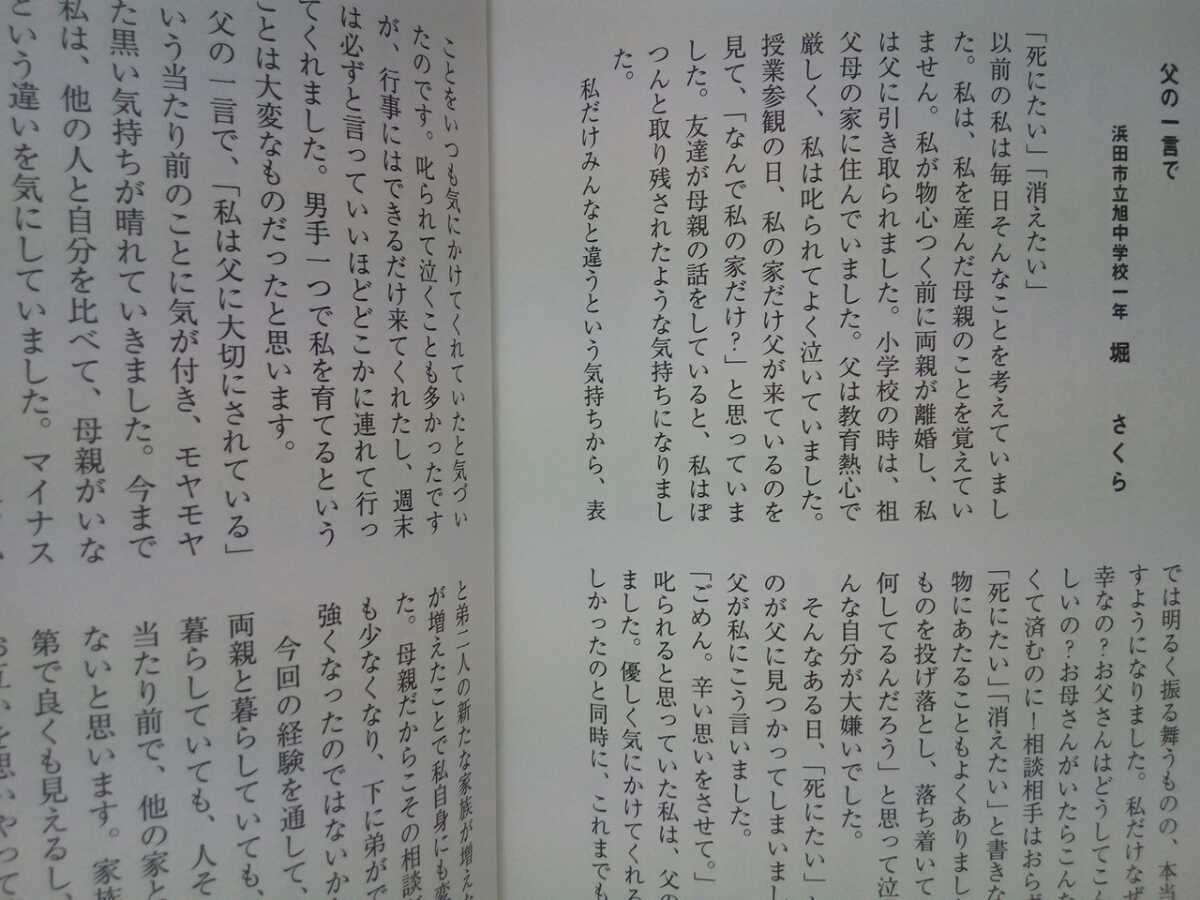 父の一言で
浜田市立旭中学校一年　堀　さくら
「死にたい」「消えたい」
以前の私は毎日そんなことを考えていまし
た。私は、私を産んだ母親のことを覚えてい
ません。私が物心つく前に両親が離婚し、私
は父に引き取られました。小学校の時は、祖
父母の家に住んでいました。父は教育熱心で
厳しく、私は叱られてよく泣いていました。
授業参観の日、私の家だけ父が来ているのを
見て、「なんで私の家だけ？」と思っていま
した。友達が母親の話をしていると、私はぽ
つんと取り残されたような気持ちになりまし
た。
私だけみんなと違うという気持ちから、表
では明るく振る舞うものの、本当
すようになりました。私だけなぜ
幸なの？お父さんはどうしてこん
しいの？お母さんがいたらこんな
くて済むのに！相談相手はおらず
「死にたい」「消えたい」と書きな
物にあたることもよくありまし
ものを投げ落とし、落ち着いて
何してるんだろう」と思って泣
んな自分が大嫌いでした。
そんなある日、「死にたい」
のが父に見つかってしまいまし
父が私にこう言いました。
「ごめん。辛い思いをさせて。」
叱られると思っていた私は、父の
ました。優しく気にかけてくれる
しかったのと同時に、これまでも
ことをいつも気にかけてくれていたと気づい
たのです。叱られて泣くことも多かったです
が、行事にはできるだけ来てくれたし、週末
は必ずと言っていいほどどこかに連れて行っ
てくれました。男手一つで私を育てるという
ことは大変なものだったと思います。
父の一言で、「私は父に大切にされている」
いう当たり前のことに気が付き、モヤモヤ
た黒い気持ちが晴れていきました。今まで
私は、他の人と自分を比べて、母親がいな
という違いを気にしていました。マイナス
と弟二人の新たな家族が増え
が増えたことで私自身にも変
た。母親だからこその相談
も少なくなり、下に弟がで
強くなったのではないか
今回の経験を通して、
両親と暮らしていても、
暮らしていても、人そ
当たり前で、他の家と
ないと思います。家族
第で良くも見えるし、
お互いを思いやって